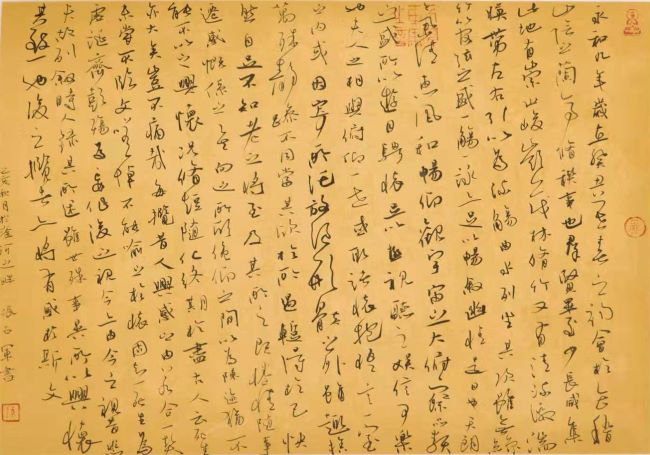 永和九年歲在癸丑暮春之初會於會稽
山陰之蘭亭脩禊事也群賢畢至少長咸集
此地有崇山峻嶺茂林脩竹又有清流激湍
暎帶左右引以為流觴曲水列坐其次雖無絲
竹管弦之盛一觴一詠亦足以暢敘幽情是日也天朗
氣清惠風和暢仰觀宇宙之大俯察品類
之盛所以遊目騁懷足以極視聽之娛信可樂
也夫人之相與俯仰一世或取諸懷抱悟言一室
之內或因寄所託放浪形骸之外雖趣捨
萬殊靜躁不同當其欣於所遇暫得於己快
然自足不知老之將至及其所之既惓情隨事
遷感慨係之矣向之所欣俛仰之間以為陳迹猶不
能不以之興懷況脩短隨化終期於盡古人云死生
亦大矣豈不痛哉每攬昔人興感之由若合一契
未嘗不臨文嗟悼不能喻之於懷固知一死生為
虛誕齊彭殤為妄作後之視今亦由今之視昔悲
夫故列敘時人錄其所述雖世殊事異所以興懷
其致一也後之攬者亦將有感於斯文
秋月於河之畔 張軍書